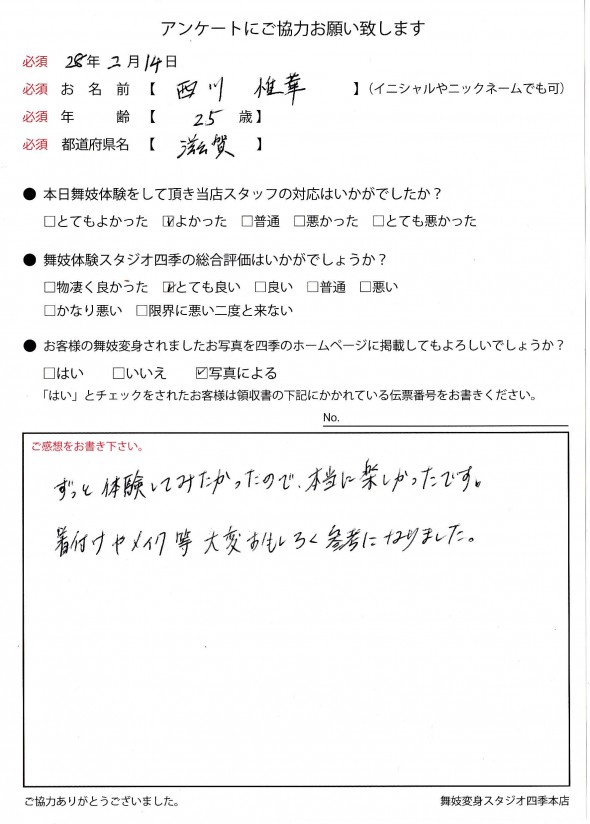 アンケートにご協力お願い致します
必須 28年 2月 14日
必須 お名前【 西川 惟華 】(イニシャルやニックネームでも可)
必須 年齢【 25 歳】
必須 都道府県名【 滋賀 】
● 本日舞妓体験をして頂き当店スタッフの対応はいかがでしたか？
□とてもよかった ☑よかった □普通 □悪かった □とても悪かった
● 舞妓体験スタジオ四季の総合評価はいかがでしょうか？
□物凄く良かうた ☑とても良い □良い □普通 □悪い
□かなり悪い □限界に悪い二度と来ない
● お客様の舞妓変身されましたお写真を四季のホームページに掲載してもよろしいでしょうか？
□はい □いいえ ☑写真による
「はい」とチェックをされたお客様は領収書の下記にかかれている伝票番号をお書きください。
No.
ご感想をお書き下さい。
ずっと体験してみたかったので、本当に楽しかったです。
着付けやメイク等大変おもしろく参考になりました。
ご協力ありがとうございました。
舞妓変身スタジオ四季本店